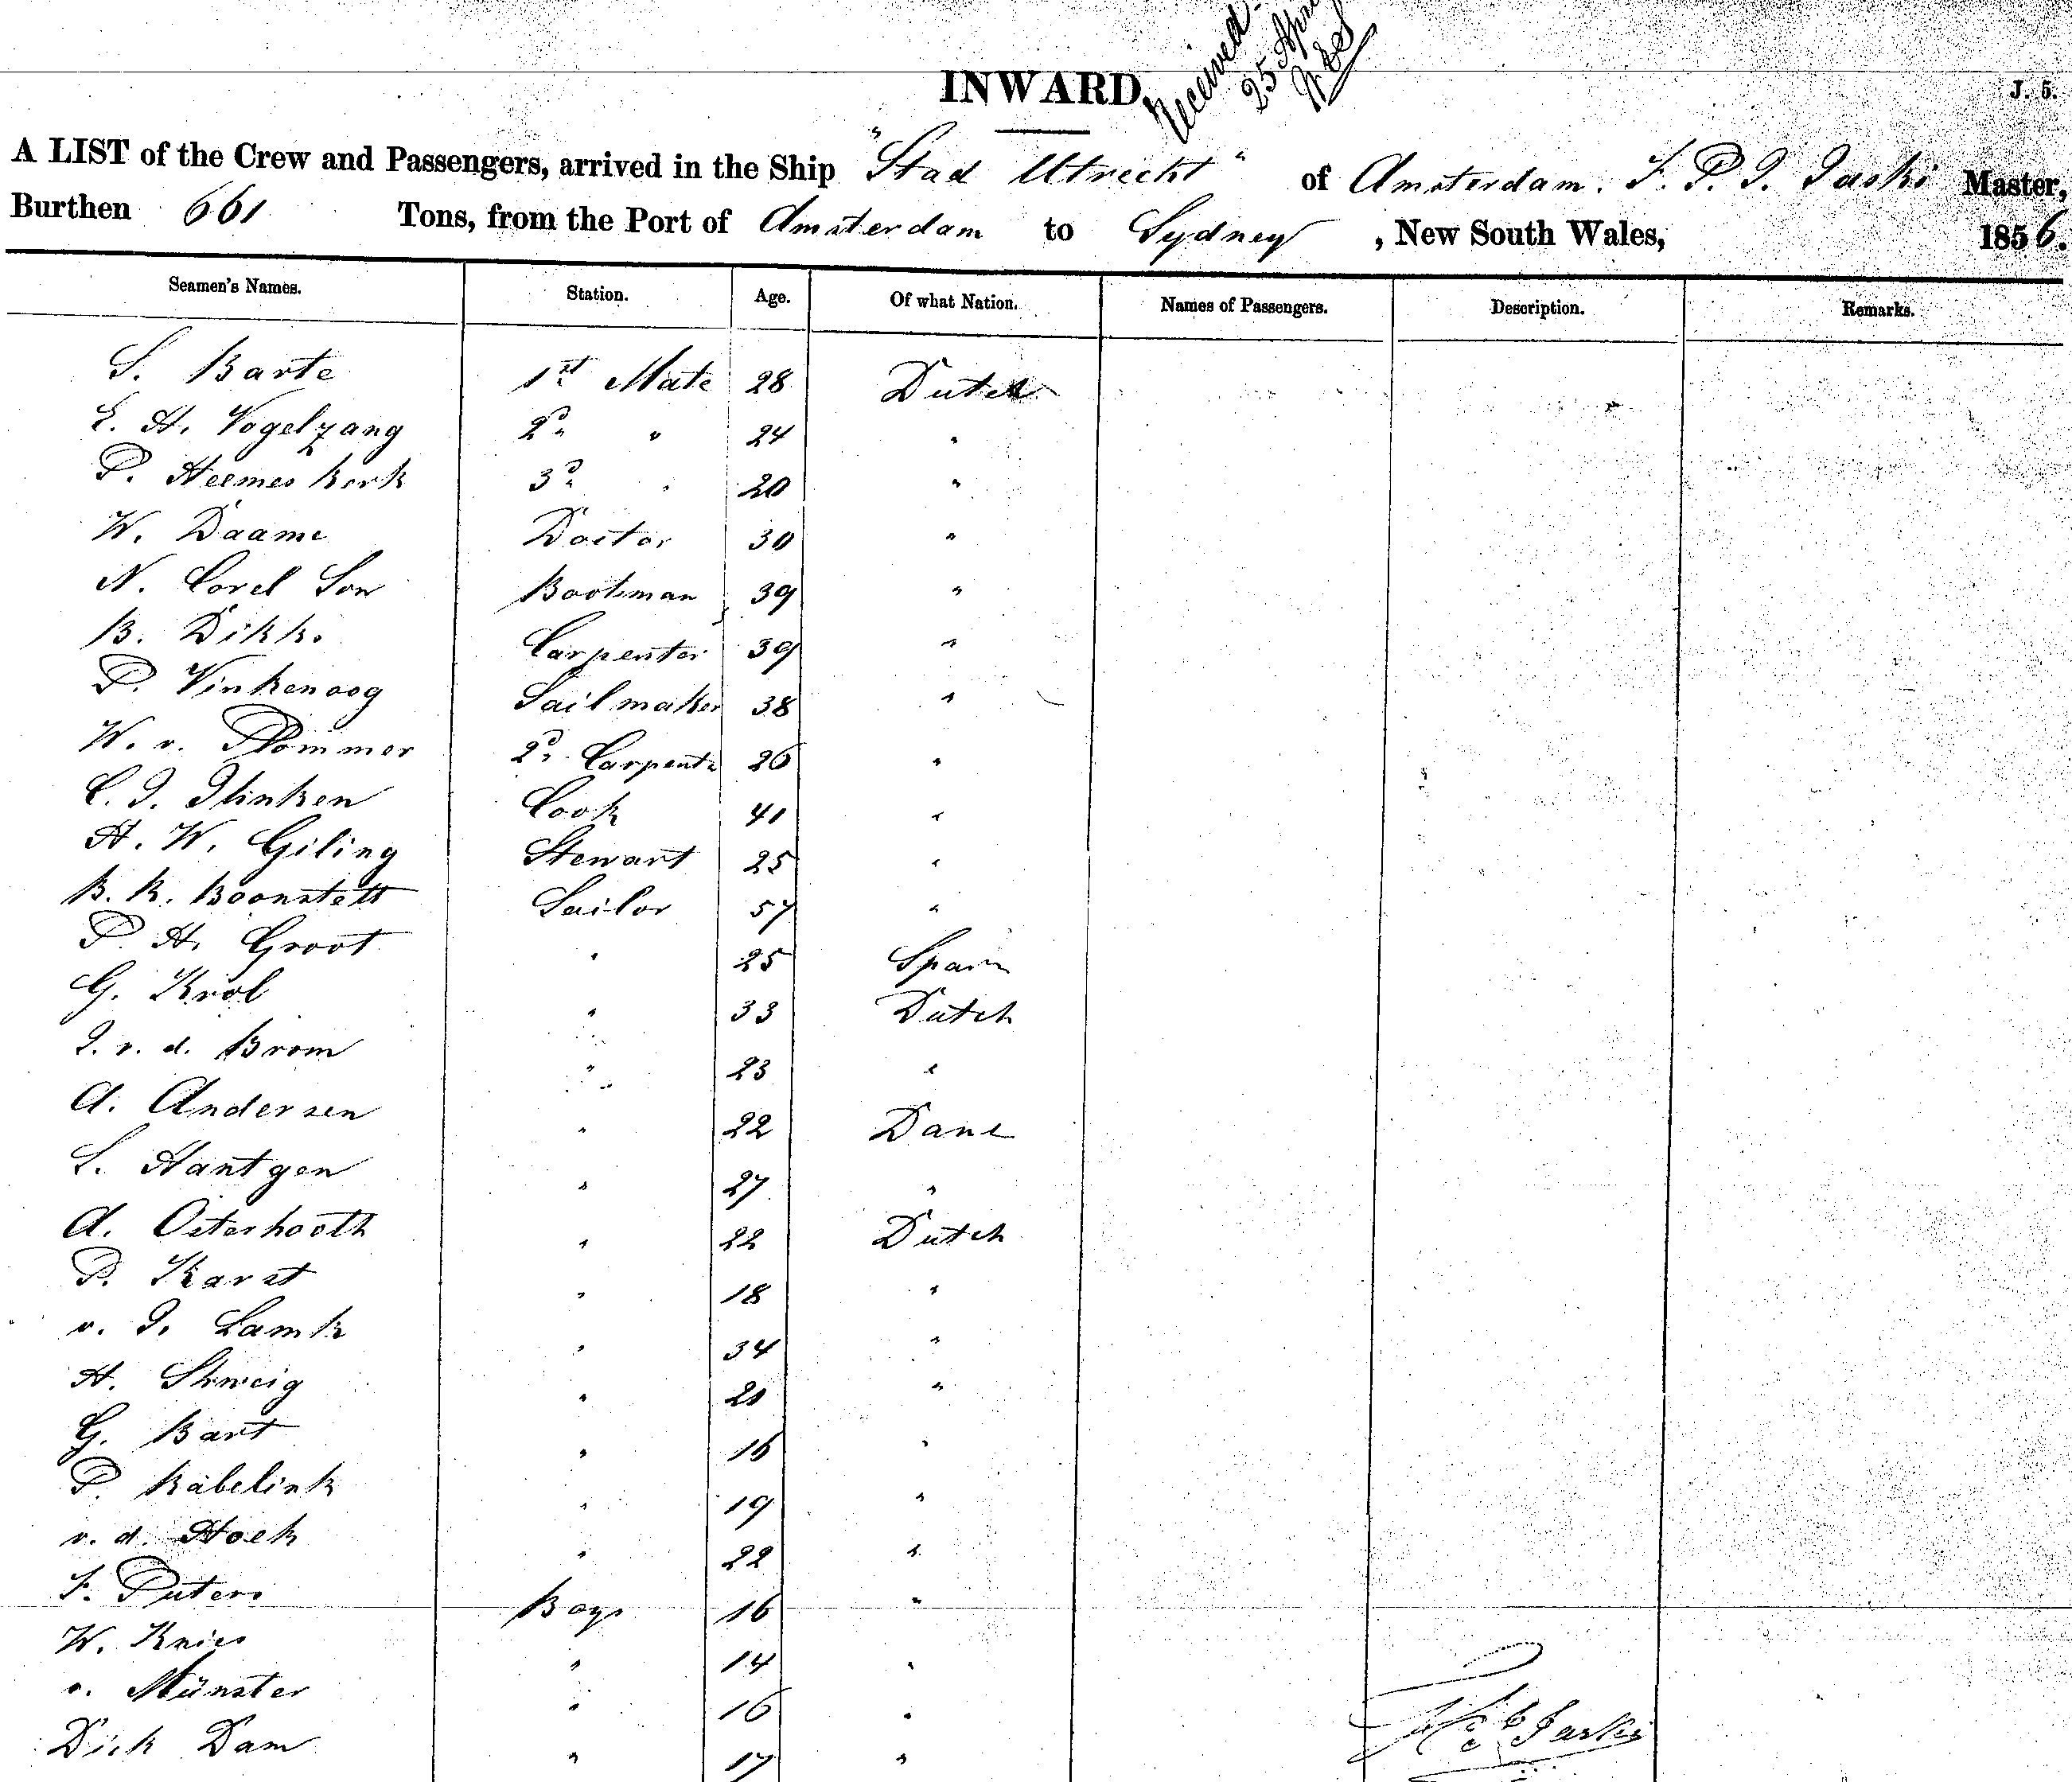 Received
25 Apri
INWARD.
J. 5.
A LIST of the Crew and Passengers, arrived in the Ship "Stad Utrecht" of Amsterdam. F. P. J. Jaski Master,
Burthen 661 Tons, from the Port of Amsterdam to Sydney, New South Wales, 1856.
Seamen's Names. Station. Age. Of what Nation. Names of Passengers. Description. Remarks.
S. Barte 1st Mate 28 Dutch
E. H. Vogelzang 2d " 24 "
P. Heemes kerk 3d " 20 "
W. Daame Doctor 30 "
N. Corel Son Bootsman 39 "
B. Dikk. Carpenter 39 "
P. Vinkenoog Sailmaker 38 "
W. v. Plommer 2d Carpente 26 "
C. J. Flinken Cook 41 "
H. W. Giling Stewart 25 "
B. K. Boonstett Sailor 57 "
P. H. Groot " 25 Spain
G. Krol " 33 Dutch
J. v. d. Brom " 23 "
A. Andersen " 22 Dane
S. Hantgen " 27 "
A. Osterhooth " 22 Dutch
P. Karst " 18 "
v. J. Lamk " 34 "
H. Shweig " 20 "
G. Bart " 16 "
P. Kabelink " 19 "
v. d. Hoek " 22 "
F. Puters Boys 16 "
W. Knies " 14 "
v. Münster " 16 "
Dick Dam " 17 "
Jaski